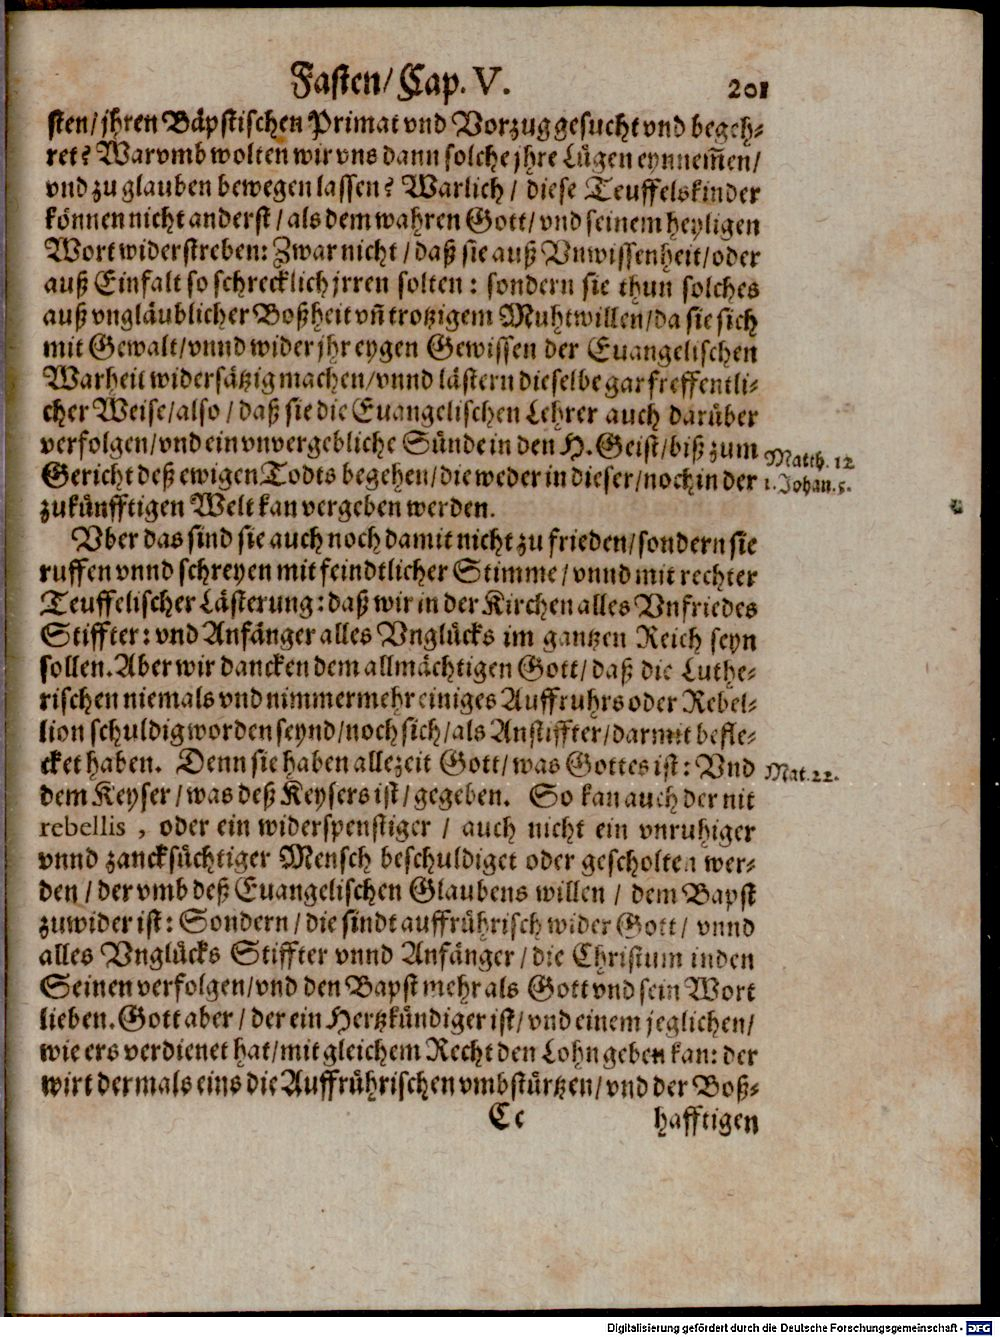 Fasten/ Cap. V. 201
sten/ jhren Bäpstischen Primat vnd Vorzug gesucht vnd begeh-
ret? Warvmb wolten wir vns dann solche jhre Lügen eynnem̃en/
vnd zu glauben bewegen lassen? Warlich/ diese Teuffelskinder
können nicht anderst/ als dem wahren Gott/ vnd seinem heyligen
Wort widerstreben: Zwar nicht/ daß sie auß Vnwissenheit/ oder
auß Einfalt so schrecklich jrren solten: sondern sie thun solches
auß vngläublicher Boßheit vñ trotzigem Muhtwillen/ da sie sich
mit Gewalt/ vnnd wider jhr eygen Gewissen der Euangelischen
Warheit widersätzig machen/ vnnd lästern dieselbe gar freffentli-
cher Weise/ also/ daß sie die Euangelischen Lehrer auch darüber
verfolgen/ vnd ein vnvergebliche Sünde in den H. Geist/ biß zum
Matth. 12
Gericht deß ewigen Todts begehen/ die weder in dieser/ noch in der
1. Johan. 5.
zukünfftigen Welt kan vergeben werden.
Vber das sind sie auch noch damit nicht zu frieden/ sondern sie
ruffen vnnd schreyen mit feindtlicher Stimme/ vnnd mit rechter
Teuffelischer Lästerung: daß wir in der Kirchen alles Vnfriedes
Stiffter: vnd Anfänger alles Vnglücks im gantzen Reich seyn
sollen. Aber wir dancken dem allmächtigen Gott/ daß die Luthe-
rischen niemals vnd nimmermehr einiges Auffruhrs oder Rebel-
lion schuldig worden seynd/ noch sich/ als Anstiffter/ darmit befle-
cket haben. Denn sie haben allezeit Gott/ was Gottes ist: Vnd
Mat. 22.
dem Keyser/ was deß Keysers ist/ gegeben. So kan auch der nit
rebellis, oder ein widerspenstiger/ auch nicht ein vnruhiger
vnnd zancksüchtiger Mensch beschuldiget oder gescholten wer-
den/ der vmb deß Euangelischen Glaubens willen/ dem Bapst
zuwider ist: Sondern/ die sindt auffrührisch wider Gott/ vnnd
alles Vnglücks Stiffter vnnd Anfänger/ die Christum in den
Seinen verfolgen/ vnd den Bapst mehr als Gott vnd sein Wort
lieben. Gott aber/ der ein Hertzkündiger ist/ vnd einem jeglichen/
wie ers verdienet hat/ mit gleichem Recht den Lohn geben kan: der
wirt dermals eins die Auffrührischen vmbstürtzen/ vnd der Boß-
Cc hafftigen
Digitalisierung gefördert durch die Deutsche Forschungsgemeinschaft - DFG